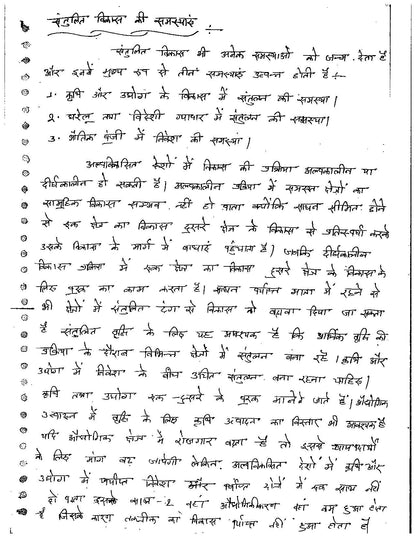 संतुलित विकास की समस्याएं :-
संतुलित विकास भी अनेक समस्याओं को जन्म देता है
और इनमें मुख्य रूप से तीन समस्याएं उत्पन्न होती है :-
1. कृषि और उद्योग के विकास में संतुलन की समस्या।
2. घरेलू तथा विदेशी व्यापार में संतुलन की समस्या।
3. भौतिक पूंजी में निवेश की समस्या।
अल्पविकसित देशों में विकास की प्रक्रिया अल्पकालीन या
दीर्घकालीन हो सकती है। अल्पकालीन प्रक्रिया में समस्त क्षेत्रों का
सामूहिक विकास सम्भव नहीं हो पाता क्योंकि साधन सीमित होने
से एक क्षेत्र का विकास दूसरे क्षेत्र के विकास से प्रतिस्पर्धा करके
उसके विकास के मार्ग में बाधाएं पहुंचाता है। जबकि दीर्घकालीन
विकास प्रक्रिया में एक क्षेत्र का विकास दूसरे क्षेत्र के विकास के
लिए पूरक का काम करता है। साधन पर्याप्त मात्रा में रहने से
भी क्षेत्रों में संतुलित ढंग से विकास को बढ़ावा दिया जा सकता
है संतुलित वृद्धि के लिए यह आवश्यक है कि आर्थिक वृद्धि की
प्रक्रिया के दौरान विभिन्न क्षेत्रों में संतुलन बना रहे। कृषि और
उद्योग में निवेश के बीच उचित संतुलन बना रहना चाहिए।
कृषि तथा उद्योग एक दूसरे के पूरक माने जाते हैं। औद्योगिक
उत्पादन में वृद्धि के लिए कृषि उत्पादन का विस्तार भी आवश्यक है
यदि औद्योगिक क्षेत्र में रोजगार बढ़ता है तो इससे खाद्य पदार्थों
के लिए मांग बढ़ जायेगी लेकिन अल्पविकसित देशों में कृषि और
उद्योग में पर्याप्त निवेश और दोनों में एक साथ नहीं
हो पाता इसके साथ-2 वहां औद्योगिकीकरण कम हुआ होता
है जिसके कारण तकनीक का विकास पर्याप्त नहीं हुआ होता है